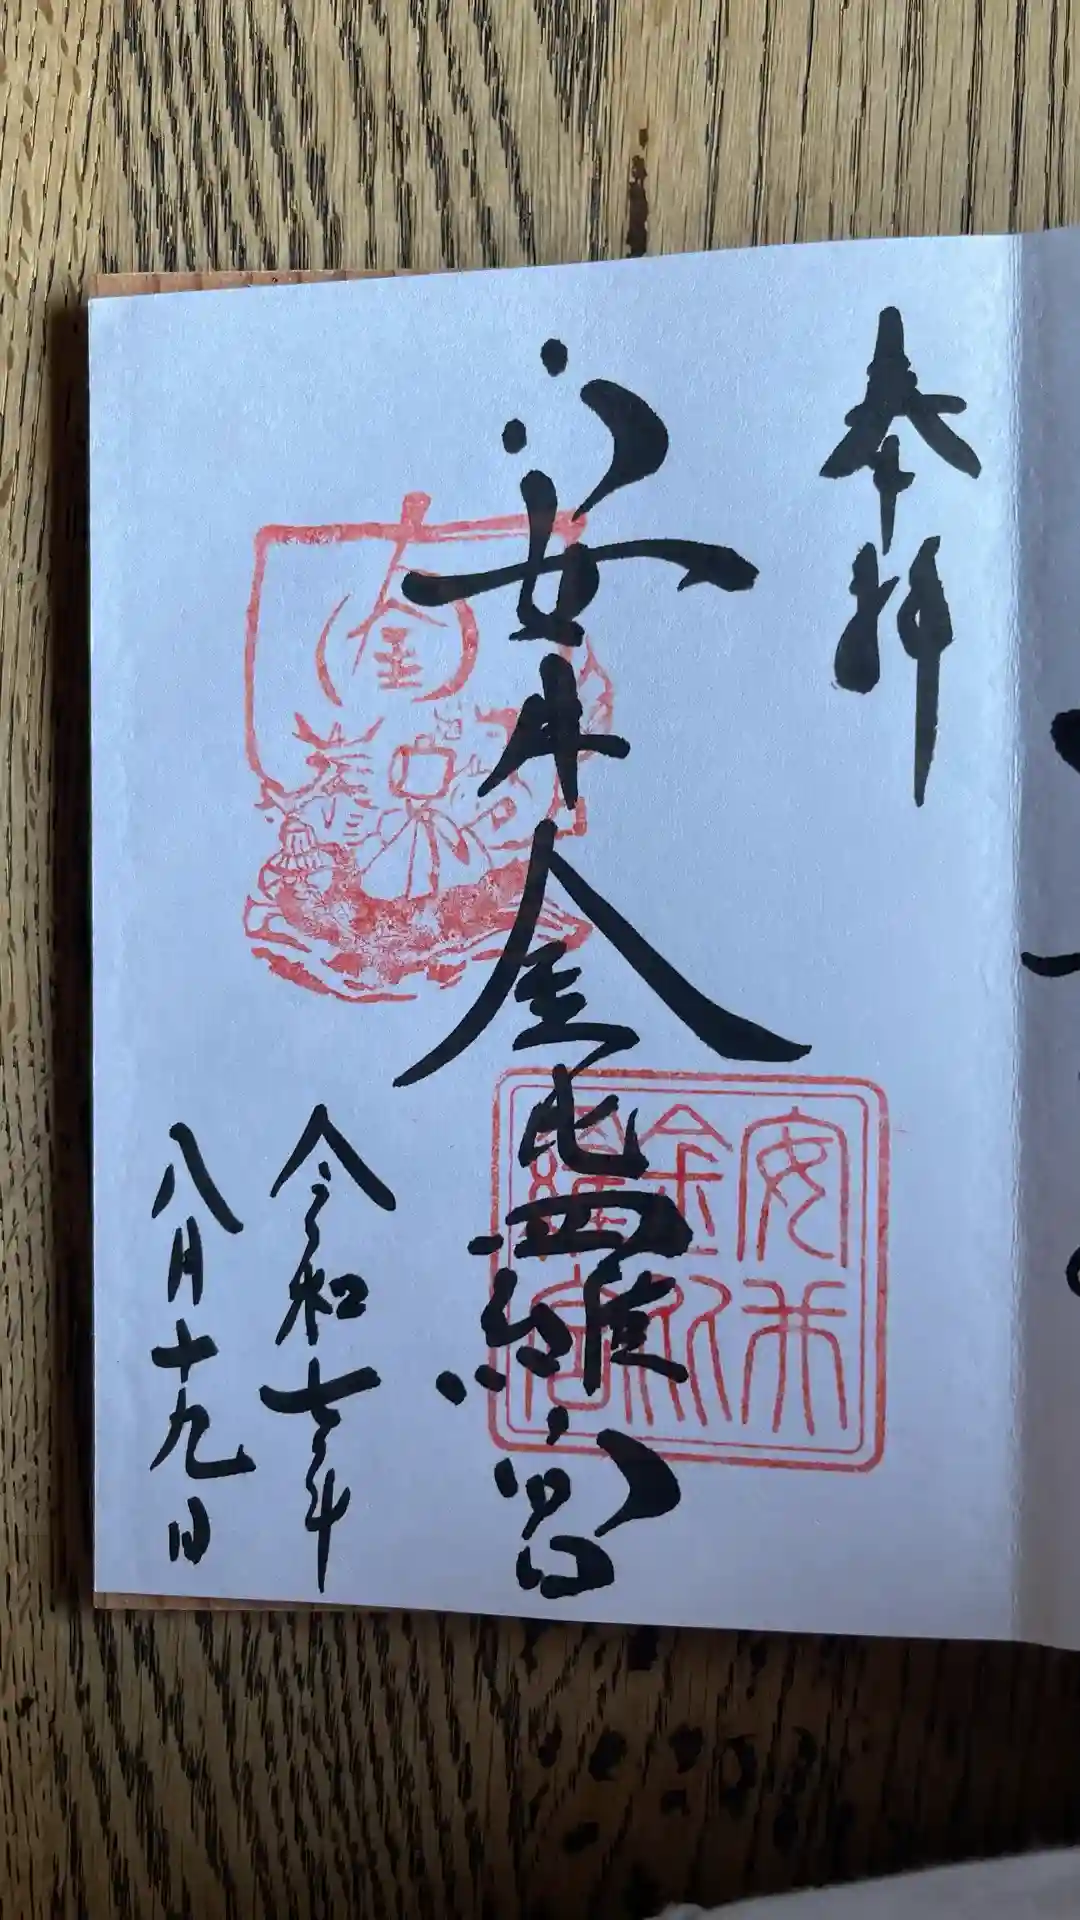 奉拝
安井金比羅宮
令和七年
八月十九日
金
安井
金比
羅宮